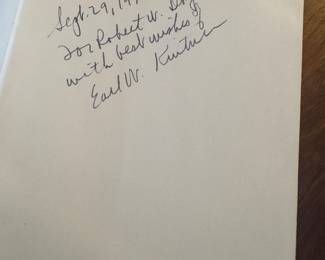 Sept. 29, 19
For Robert W.
with best wishes of
Earl W. Kintner